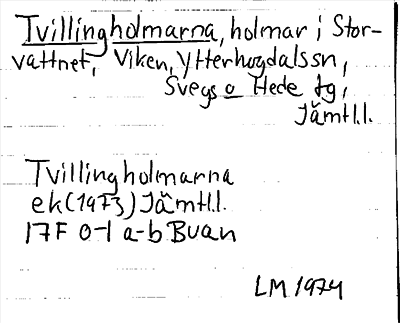 Tvillingholmarna, holmar i Stor-
vattnet, Viken, Ytterhogdalssn,
Svegs o Hede tg,
Jämtl.l.
Tvillingholmarna
ek (1973) Jämtl.l.
17F 0-1 a-b Buan
LM 1974